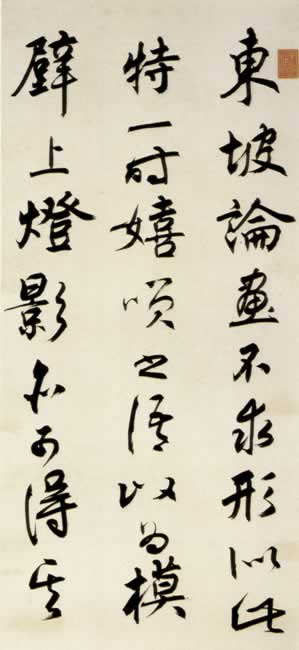 東坡論畫不求形似此
特一時嬉咲之語以為模
壁上燈影可得其